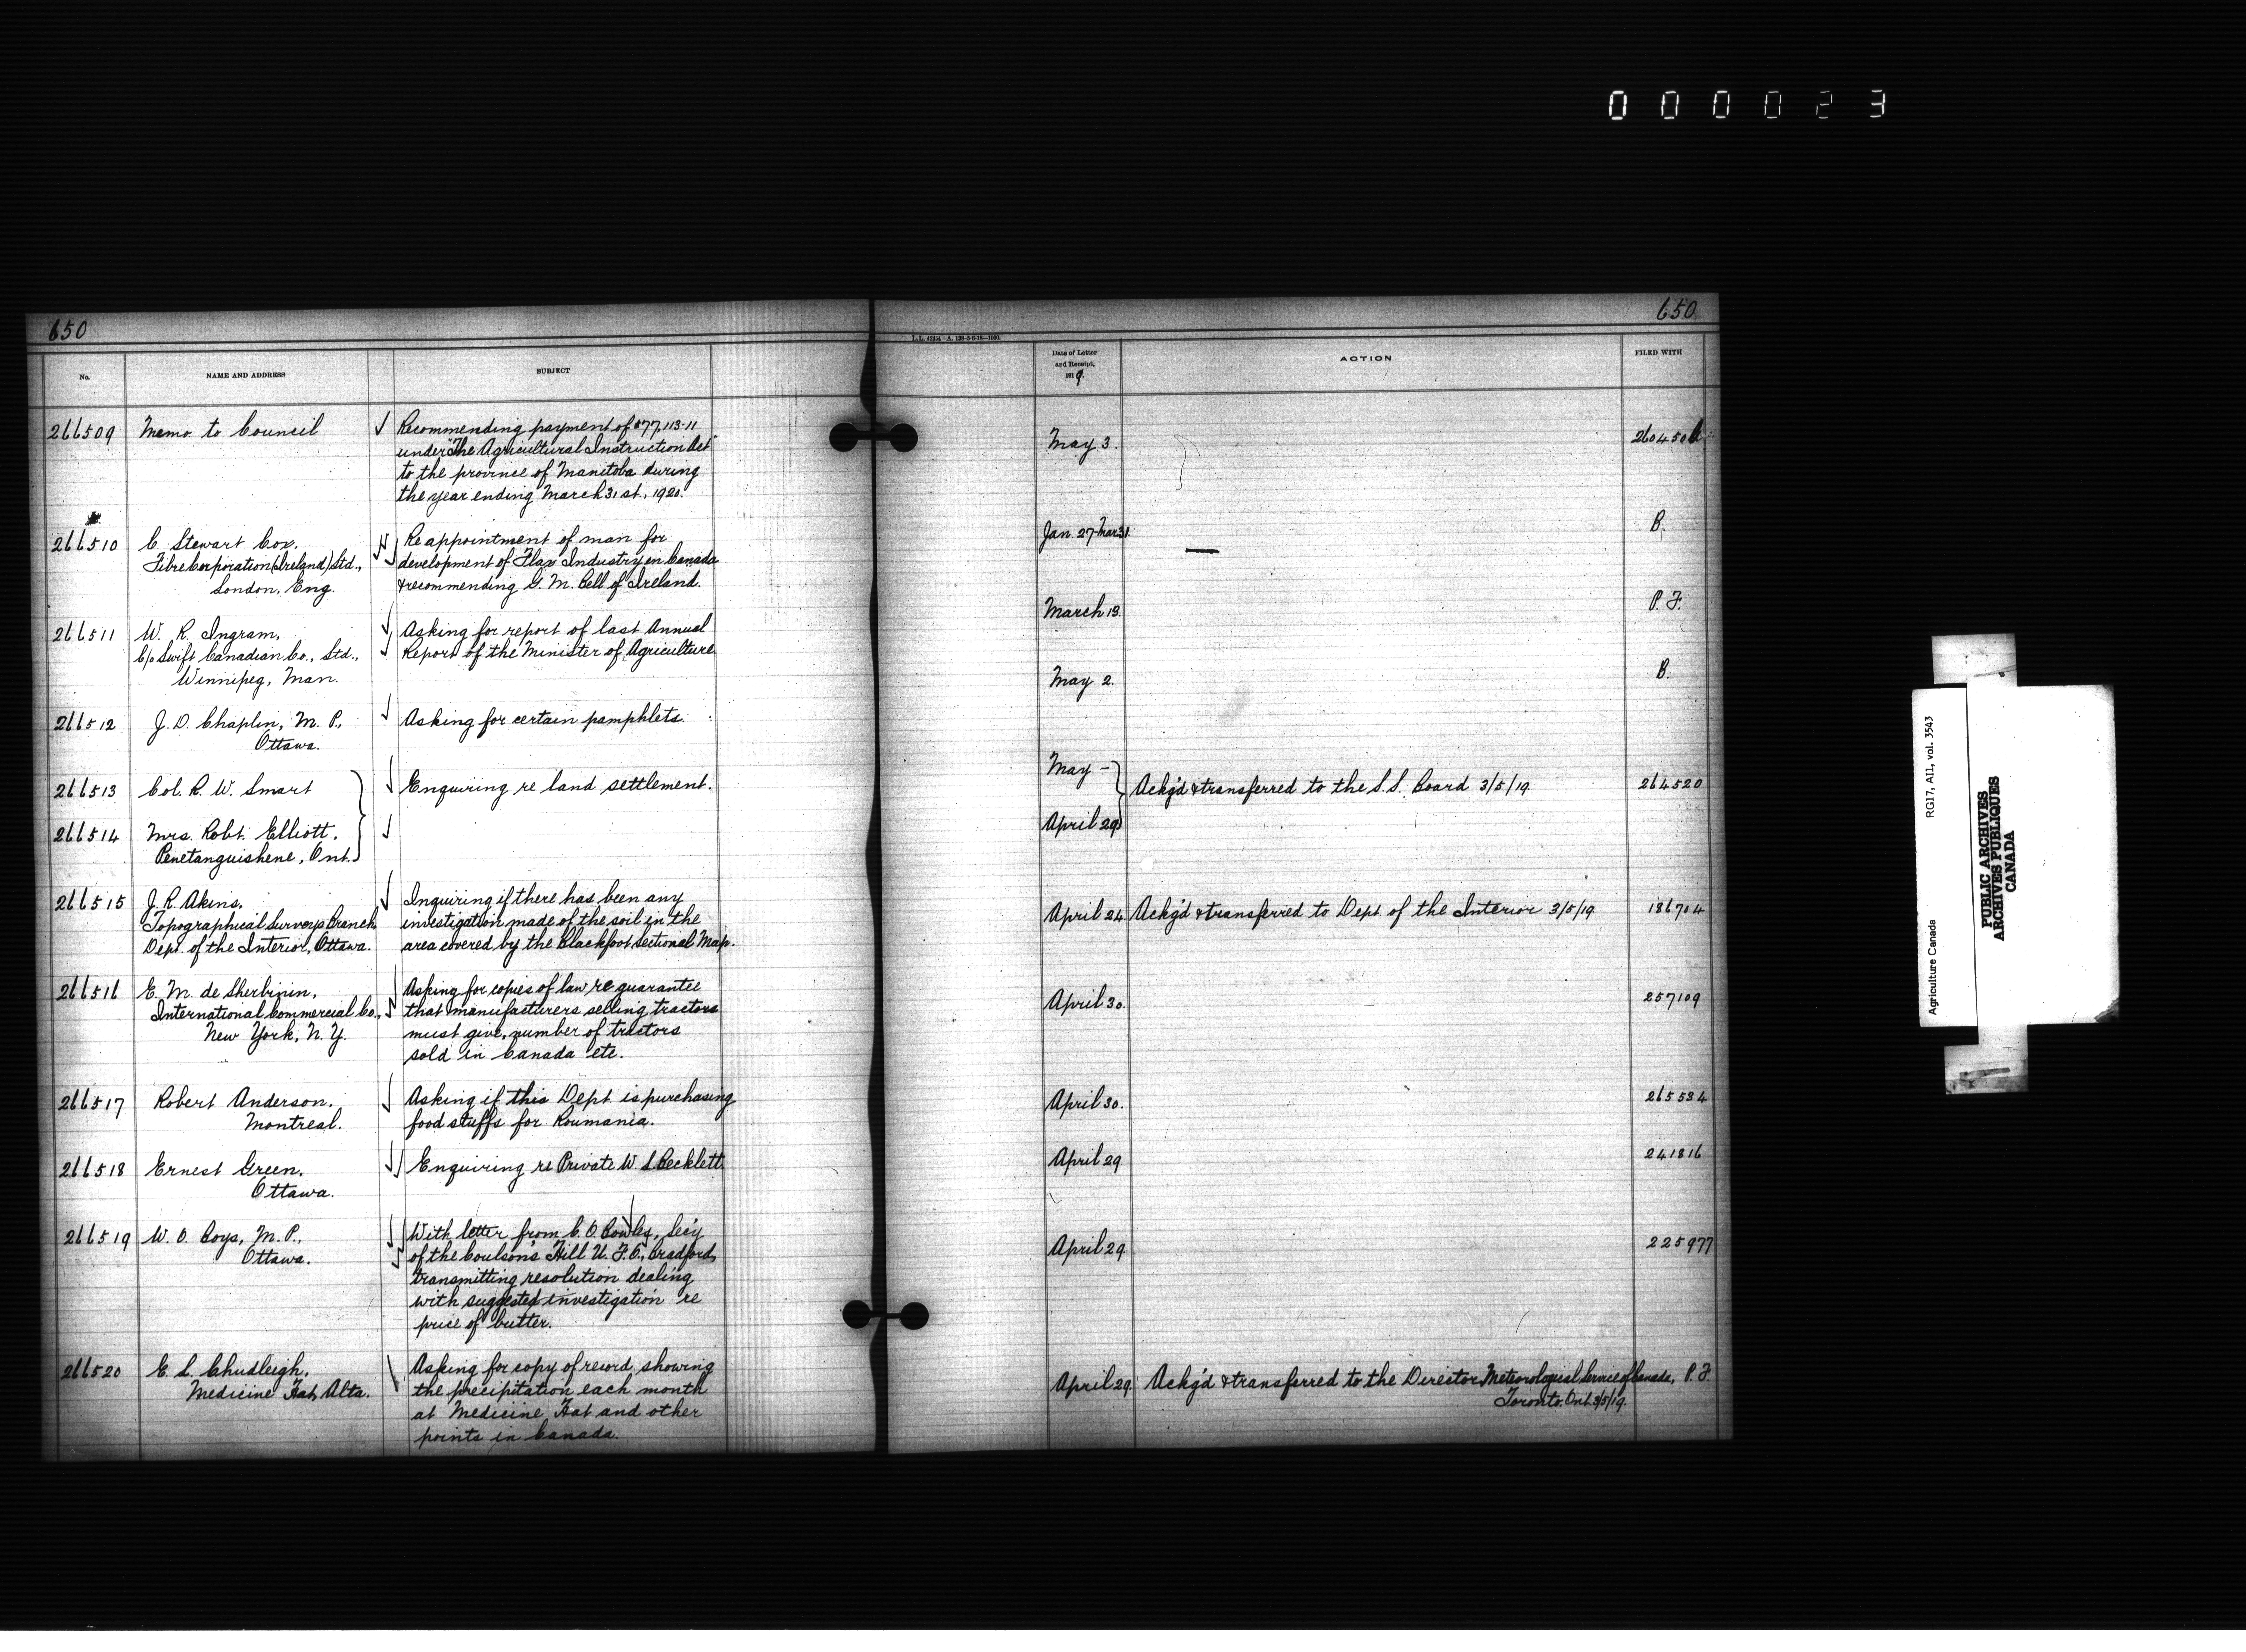 000023
650
650
L.L. 42454-A. 138-5-6-18-1000.
No.
NAME AND ADDRESS
SUBJECT
Date of Letter
and Receipt,
1919.
ACTION
FILED WITH
266509
Memo to Council
Recommending payment of $77,113.11
under "The Agricultural Instruction Act"
to the province of Manitoba during
the year ending March 31st, 1920.
May 3.
260450
266510
C. Stewart Cox,
Fibre Corporation (Ireland) Ltd.,
London, Eng.
Re appointment of man for
development of Flax Industry in Canada
& recommending G. M. Bell of Ireland.
Jan. 27-Mar 31.
B.
266511
W. R. Ingram,
C/o Swift Canadian Co., Ltd.,
Winnipeg, Man.
Asking for report of last Annual
Report of the Minister of Agriculture.
March 18.
P. F.
266512
J. D. Chaplin, M. P.,
Ottawa.
Asking for certain pamphlets.
May 2.
B.
266513
Col. R. W. Smart
Enquiring re land settlement.
May -
Ackg'd & transferred to the S.S. Board 3/5/19.
264520
266514
Mrs. Robt. Elliott,
Penetanguishene, Ont.
April 29
266515
J. R. Akins,
Topographical Surveys Branch,
Dept. of the Interior, Ottawa.
Inquiring if there has been any
investigation made of the soil in the
area covered by the Blackfoot sectional Map.
April 24.
Ackg'd & transferred to Dept. of the Interior 3/5/19.
186704
266516
E. M. de Sherbinin,
International Commercial Co.,
New York, N. Y.
Asking for copies of law re guarantee
that manufacturers selling tractors
must give, number of tractors
sold in Canada etc.
April 30.
257109
266517
Robert Anderson,
Montreal.
Asking if this Dept is purchasing
food stuffs for Roumania.
April 30.
265534
266518
Ernest Green,
Ottawa.
Enquiring re Private W. S. Becklett.
April 29.
241816
266519
W. O. Boys, M. P.,
Ottawa.
With letter from C. O. Bowles, Sec'y
of the Coulson's Hill U. F. O., Bradford,
transmitting resolution dealing
with suggested investigation re
price of butter.
April 29.
225977
266520
E. L. Chudleigh,
Medicine Hat, Alta.
Asking for copy of record showing
the precipitation each month
at Medicine Hat and other
points in Canada.
April 29.
Ackg'd & transferred to the Director, Meteorological Service of Canada,
Toronto, Ont. 3/5/19.
P. F.
Agriculture Canada
RG17, A11, vol. 3543
PUBLIC ARCHIVES
ARCHIVES PUBLIQUES
CANADA